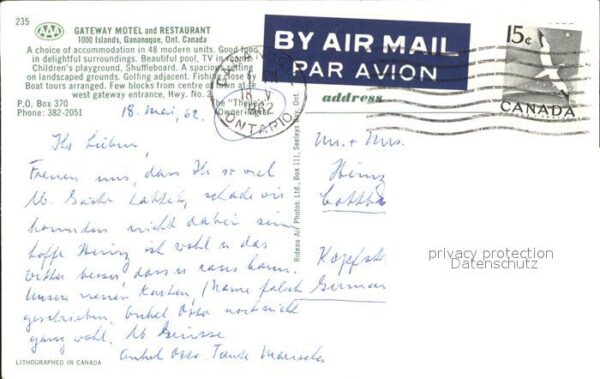 235
AAA
GATEWAY MOTEL and RESTAURANT
1000 Islands, Gananoque, Ont. Canada
A choice of accommodation in 48 modern units. Good food
in delightful surroundings. Beautiful pool, TV in rooms.
Children's playground, Shuffleboard. A spacious setting
on landscaped grounds. Golfing adjacent. Fishing close by
Boat tours arranged. Few blocks from centre of town at
west gateway entrance, Hwy. No. 2
P.O. Box 370
Phone: 382-2051
The
Owner
BY AIR MAIL
PAR AVION
18 V
1962
ONTARIO
15¢
CANADA
address
18. Mai, 62.
Ihr Lieben,
Freuen uns, dass Ihr so viel
schade wir
konnten nicht dabei sein
hoffe Heinz ist wohl u das
besser, dass er raus kann.
Unsere neuen Karten, (Name falsch
geschrieben. Onkel Otto noch nicht
ganz wohl.
Onkel Otto. Tante
Mr. + Mrs.
Heinz
German
Rideau Air Photos. Ltd., Box 111, Seeleys Bay, Ont.
privacy protection
Datenschutz
LITHOGRAPHED IN CANADA